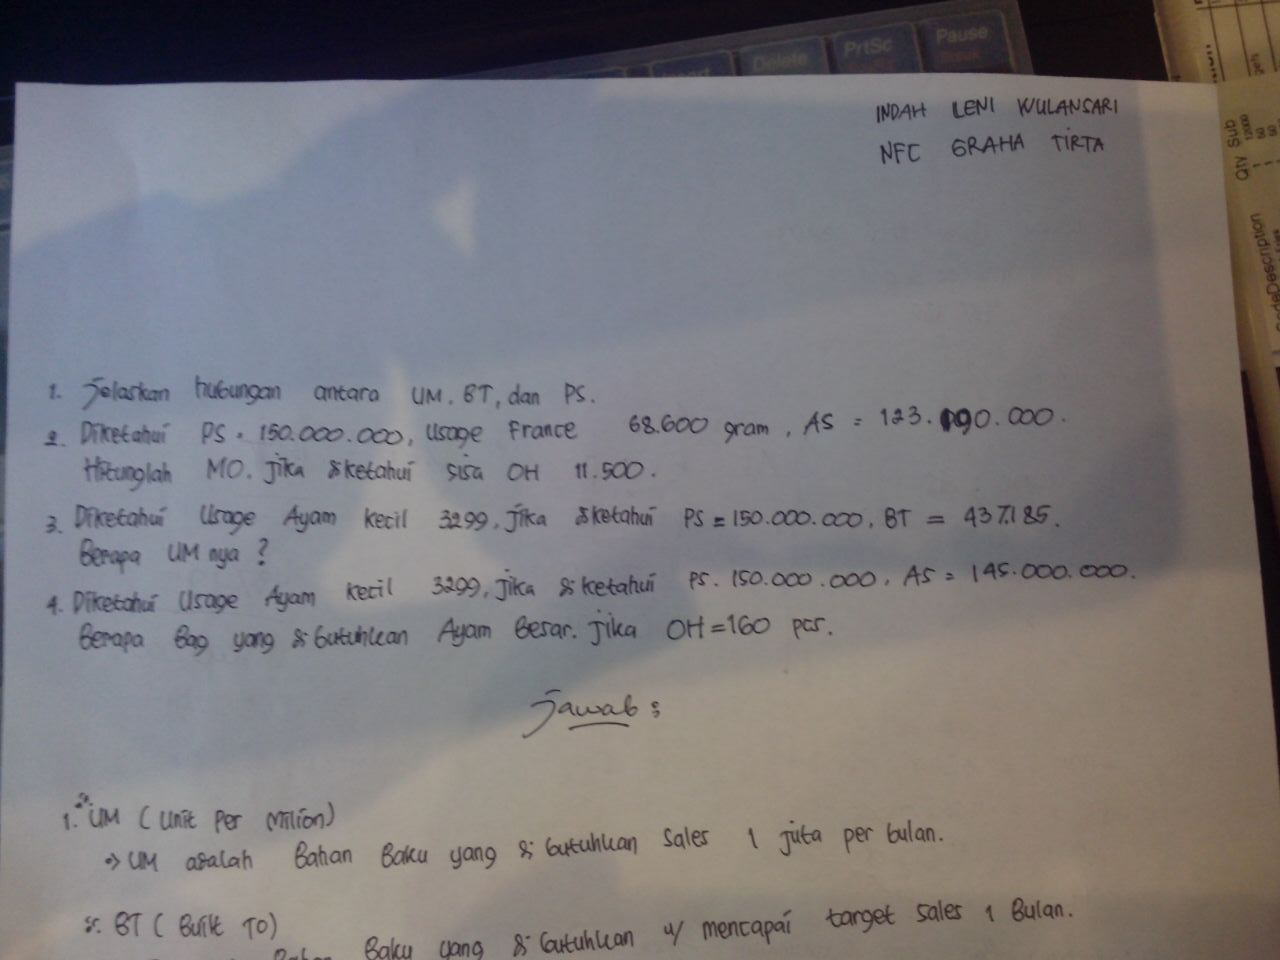 Delete
PrtSc
Pause
Qty Sub
INDAH LENI WULANSARI
NFC GRAHA TIRTA
1. Jelaskan hubungan antara UM, BT, dan PS.
2. Diketahui PS = 150.000.000, Usage France 68.600 gram, AS = 123.190.000.
Hitunglah MO. Jika diketahui sisa OH 11.500.
3. Diketahui Usage Ayam kecil 3299, Jika diketahui PS = 150.000.000, BT = 437.185.
Berapa UM nya ?
4. Diketahui Usage Ayam kecil 3299, Jika diketahui PS. 150.000.000, AS = 145.000.000.
Berapa Bag yang dibutuhkan Ayam Besar. Jika OH = 160 pcs.
Jawab :
1. UM ( Unit Per Milion)
→ UM adalah Bahan Baku yang dibutuhkan Sales 1 juta per bulan.
BT ( Built To)
Bahan Baku yang dibutuhkan u/ mencapai target sales 1 Bulan.